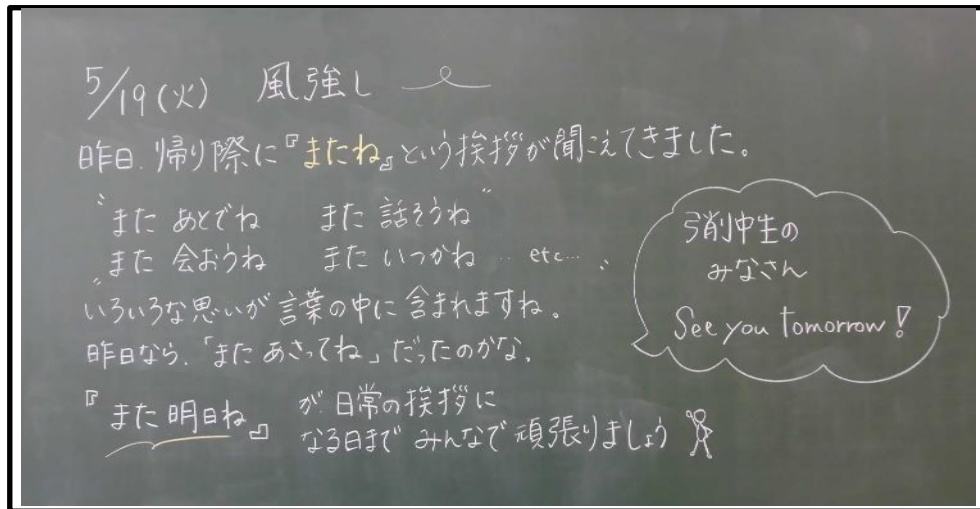 5/19(火) 風強し
昨日、帰り際に『またね』という挨拶が聞こえてきました。
"また あとでね また 話そうね"
"また 会おうね また いつかね … etc… "
いろいろな思いが言葉の中に含まれますね。
昨日なら、「また あさってね」だったのかな、
『また明日ね』が 日常の挨拶に
なる日まで みんなで 頑張りましょう
弓削中生の
みなさん
See you tomorrow!